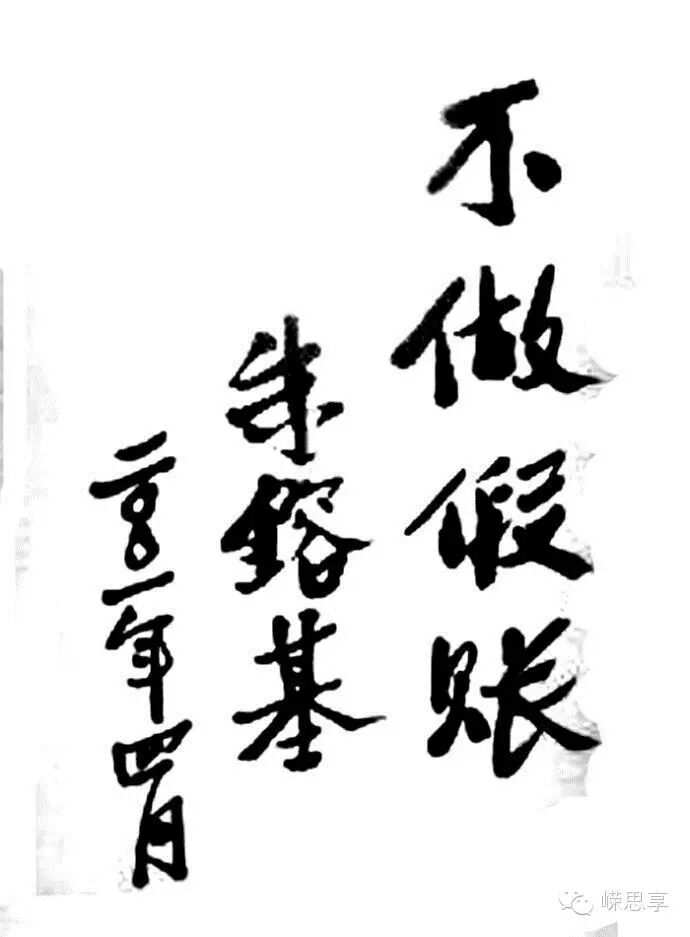 不做假账
朱镕基
二〇〇一年四月
嵘思享